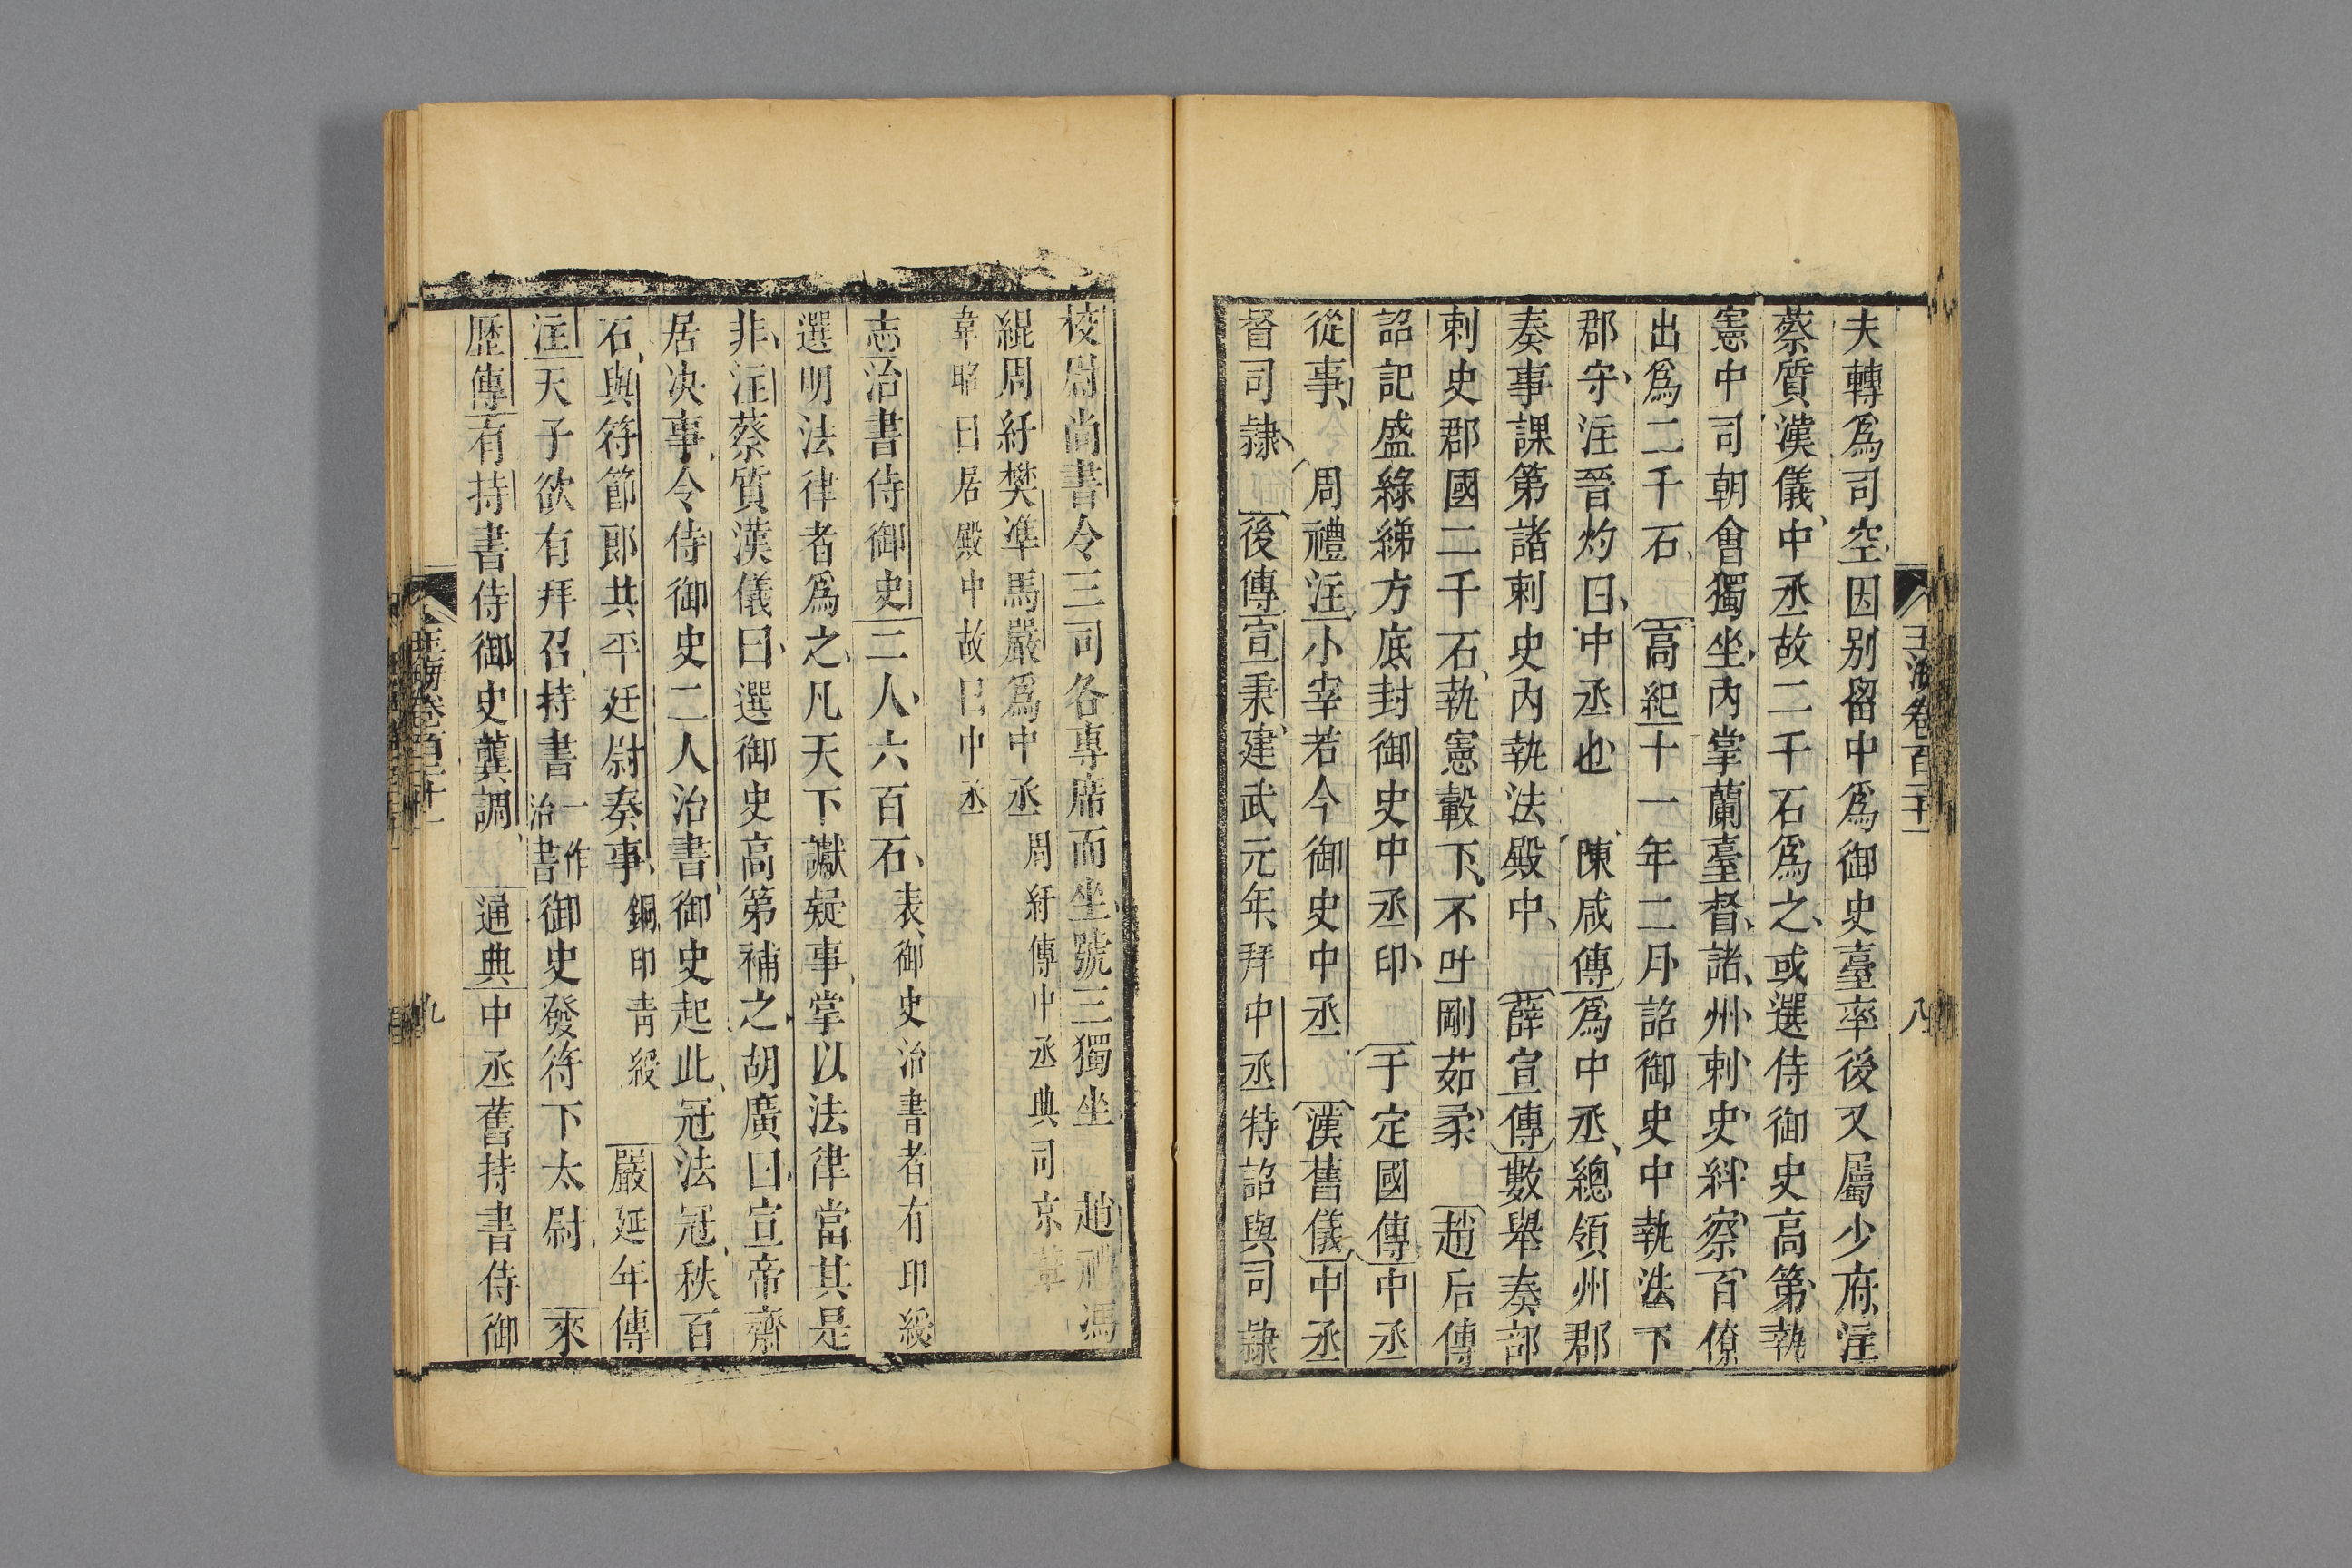 夫轉爲司空因別留中爲御史臺率後又屬少府注
蔡質漢儀中丞故二千石爲之或選侍御史高第執
憲中司朝會獨坐內掌蘭臺督諸州刺史糾察百僚
出爲二千石高紀十一年二月詔御史中執法下
郡守注晉灼曰中丞也陳咸傳爲中丞總領州郡
奏事課第諸刺史內執法殿中薛宣傳數舉奏部
刺史郡國二千石執憲轂下不吐剛茹柔趙后傳
詔記盛綠綈方底封御史中丞印于定國傳中丞
從事周禮注小宰若今御史中丞漢舊儀中丞
督司隸後傳宣秉建武元年拜中丞特詔與司隸
玉海卷百二十一
八
校尉尚書令三司各專席而坐號三獨坐趙禮馮
緄周紆樊準馬嚴爲中丞周紆傳中丞典司京輦
韋昭曰居殿中故曰中丞
志治書侍御史二人六百石表御史治書者有印綬
選明法律者爲之凡天下讞疑事掌以法律當其是
非注蔡質漢儀曰選御史高第補之胡廣曰宣帝齋
居决事令侍御史二人治書御史起此冠法冠秩百
石與符節郎共平廷尉奏事銅印青綬嚴延年傳
注天子欲有拜召持書一作治書御史發符下太尉來
歷傳有持書侍御史龔調通典中丞舊持書侍御
玉海卷百二十一
九